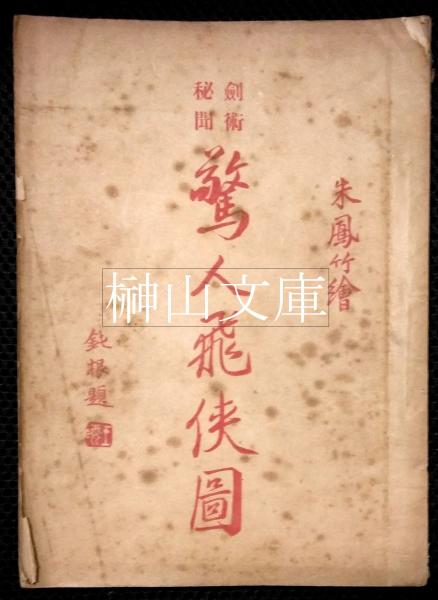 朱鳳竹繪
劍術
秘聞
驚人飛俠圖
鈍根題
榊山文庫